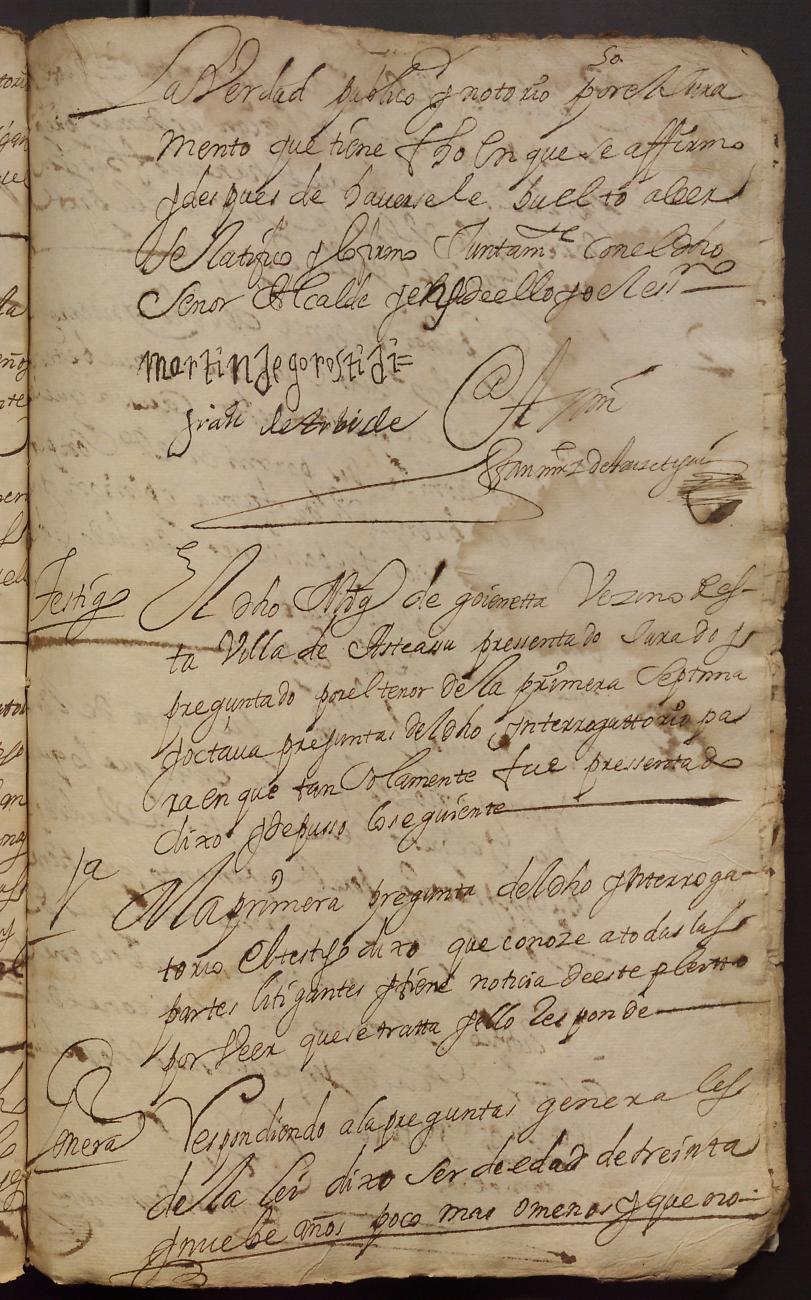 la Verdad publico y notorio so por el Jura
mento que tiene fho en que se affirmo
y despues de haversele buelto a leer
se Ratifico y lo firmo Juntamte con el dho
Señor Alcalde y en fee de ello yo el essno
martin de gorostidi=
Juan de
Testigo
El dho Migl de goienetta Vezino des-
ta Villa de Asteassu pressentado Jurado y
preguntado por el tenor de la primera Septima
y octava preguntas del dho ynterrogattorio pa
ra en que tan solamente fue pressentado
dixo y depusso lo seguiente
1a
A la primera pregunta del dho ynterroga-
torio el testigo dixo que conoze a todas las
partes litigantes y tiene noticia de este pleitto
por Veer que se tratta y ello Responde
Respondiendo a la preguntas generales
de la lei dixo ser de edad de treinta
y nuebe años poco mas o menos y que no